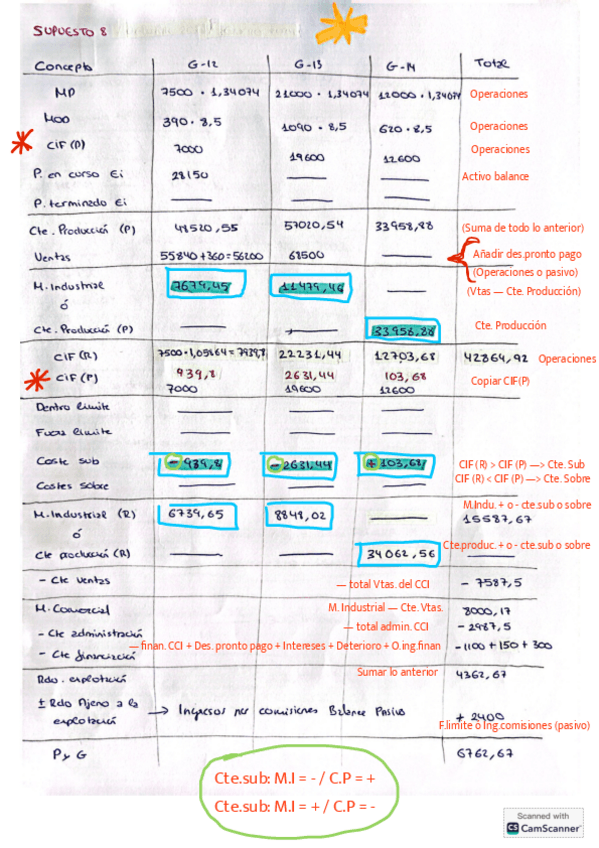 SUPUESTO 8
Concepto G-12 G-13 G-14 Total
MP 7500 · 1,34074 21000 · 1,34074 12000 · 1,34074 Operaciones
MOD 390 · 8,5 1090 · 8,5 620 · 8,5 Operaciones
CIF (P) 7000 19600 12600 Operaciones
P. en curso Ei 28150 — — Activo balance
P. terminado Ei — — —
Cte. Producción (P) 48520,55 57020,54 33958,88 (Suma de todo lo anterior)
Ventas 55840 + 360 = 56200 68500 — Añadir des.pronto pago
(Operaciones o pasivo)
M. Industrial 7679,45 11479,46 — (Vtas — Cte. Producción)
ó
Cte. Producción (P) — — 33958,88 Cte. Producción
CIF (R) 7500·1,05864 = 7939,8 22231,44 12703,68 42864,92 Operaciones
CIF (P) 939,8 2631,44 103,68 Copiar CIF(P)
7000 19600 12600
Dentro límite — — —
Fuera límite — — —
Coste sub - 939,8 - 2631,44 + 103,68 CIF (R) > CIF (P) —> Cte. Sub
Costes sobre — — — CIF (R) < CIF (P) —> Cte. Sobre
M. Industrial (R) 6739,65 8848,02 — M.Indu. + o - cte.sub o sobre
15587,67
ó
Cte producción (R) — — 34062,56 Cte.produc. + o - cte.sub o sobre
- Cte Ventas — total Vtas. del CCI - 7587,5
M. Comercial M. Industrial — Cte. Vtas. 8000,17
- Cte administración — total admin. CCI - 2987,5
- Cte financiación — finan. CCI + Des. pronto pago + Intereses + Deterioro + O.ing.finan - 1100 + 150 + 300
Rdo. explotación Sumar lo anterior 4362,67
± Rdo Ajeno a la explotación → Ingresos por comisiones Balance Pasivo + 2400
F.limite o Ing.comisiones (pasivo)
P y G 6762,67
Cte.sub: M.I = - / C.P = +
Cte.sub: M.I = + / C.P = -
Scanned with
CS CamScanner